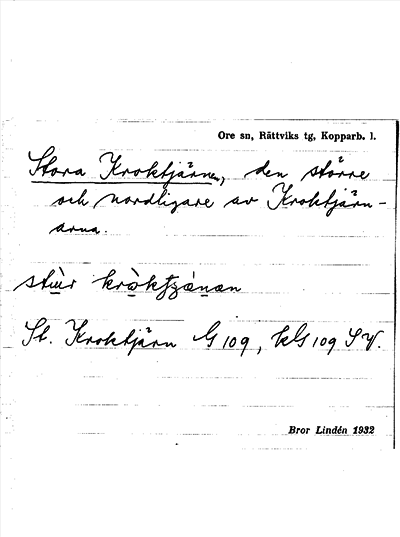 Ore sn, Rättviks tg, Kopparb. l.
Stora Kroktjärnen, den större
och nordligare av Kroktjärn-
arna.
St. Kroktjärn G 109, kG 109 SV.
Bror Lindén 1932